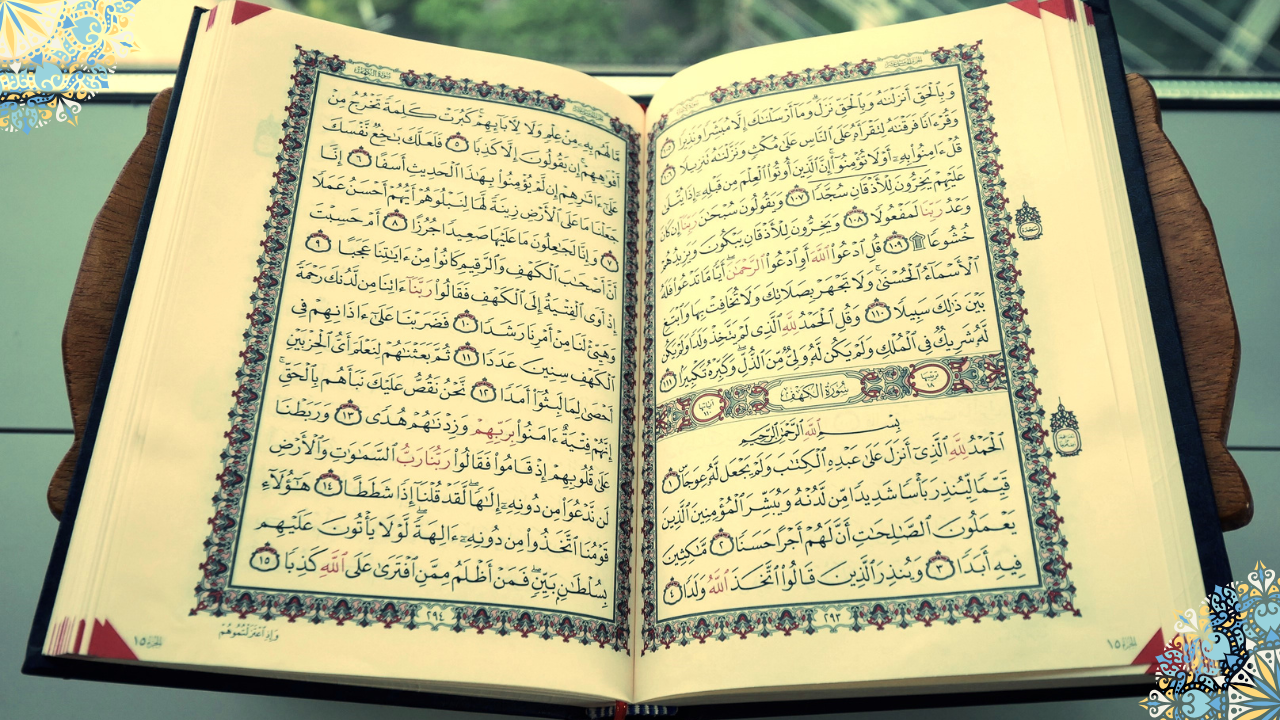 وَبِٱلۡحَقِّ أَنزَلۡنَٰهُ وَبِٱلۡحَقِّ نَزَلَۗ وَمَآ أَرۡسَلۡنَٰكَ إِلَّا مُبَشِّرٗا وَنَذِيرٗا ١٠٥
وَقُرۡءَانٗا فَرَقۡنَٰهُ لِتَقۡرَأَهُۥ عَلَى ٱلنَّاسِ عَلَىٰ مُكۡثٖ وَنَزَّلۡنَٰهُ تَنزِيلٗا ١٠٦
قُلۡ ءَامِنُواْ بِهِۦٓ أَوۡ لَا تُؤۡمِنُوٓاْۚ إِنَّ ٱلَّذِينَ أُوتُواْ ٱلۡعِلۡمَ مِن قَبۡلِهِۦٓ إِذَا يُتۡلَىٰ
عَلَيۡهِمۡ يَخِرُّونَۤ لِلۡأَذۡقَانِۤ سُجَّدٗاۤ ١٠٧ وَيَقُولُونَ سُبۡحَٰنَ رَبِّنَآ إِن كَانَ
وَعۡدُ رَبِّنَا لَمَفۡعُولٗا ١٠٨ وَيَخِرُّونَ لِلۡأَذۡقَانِ يَبۡكُونَ وَيَزِيدُهُمۡ
خُشُوعٗا۩ ١٠٩ قُلِ ٱدۡعُواْ ٱللَّهَ أَوِ ٱدۡعُواْ ٱلرَّحۡمَٰنَۖ أَيّٗا مَّا تَدۡعُواْ فَلَهُ
ٱلۡأَسۡمَآءُ ٱلۡحُسۡنَىٰۚ وَلَا تَجۡهَرۡ بِصَلَاتِكَ وَلَا تُخَافِتۡ بِهَا وَٱبۡتَغِ
بَيۡنَ ذَٰلِكَ سَبِيلٗا ١١٠ وَقُلِ ٱلۡحَمۡدُ لِلَّهِ ٱلَّذِي لَمۡ يَتَّخِذۡ وَلَدٗا وَلَمۡ يَكُن
لَّهُۥ شَرِيكٞ فِي ٱلۡمُلۡكِ وَلَمۡ يَكُن لَّهُۥ وَلِيّٞ مِّنَ ٱلذُّلِّۖ وَكَبِّرۡهُ تَكۡبِيرَۢا ١١١
سُورَةُ الكَهۡفِ
بِسۡمِ ٱللَّهِ ٱلرَّحۡمَٰنِ ٱلرَّحِيمِ
ٱلۡحَمۡدُ لِلَّهِ ٱلَّذِيٓ أَنزَلَ عَلَىٰ عَبۡدِهِ ٱلۡكِتَٰبَ وَلَمۡ يَجۡعَل لَّهُۥ عِوَجَاۜ ١
قَيِّمٗا لِّيُنذِرَ بَأۡسٗا شَدِيدٗا مِّن لَّدُنۡهُ وَيُبَشِّرَ ٱلۡمُؤۡمِنِينَ ٱلَّذِينَ
يَعۡمَلُونَ ٱلصَّٰلِحَٰتِ أَنَّ لَهُمۡ أَجۡرًا حَسَنٗا ٢ مَّٰكِثِينَ
فِيهِ أَبَدٗا ٣ وَيُنذِرَ ٱلَّذِينَ قَالُواْ ٱتَّخَذَ ٱللَّهُ وَلَدٗا ٤
٢٩٣
سُورَةُ الكَهۡفِ
مَّا لَهُم بِهِۦ مِنۡ عِلۡمٖ وَلَا لِأٓبَآئِهِمۡۚ كَبُرَتۡ كَلِمَةٗ تَخۡرُجُ مِنۡ
أَفۡوَٰهِهِمۡۚ إِن يَقُولُونَ إِلَّا كَذِبٗا ٥ فَلَعَلَّكَ بَٰخِعٞ نَّفۡسَكَ
عَلَىٰٓ ءَاثَٰرِهِمۡ إِن لَّمۡ يُؤۡمِنُواْ بِهَٰذَا ٱلۡحَدِيثِ أَسَفًا ٦ إِنَّا
جَعَلۡنَا مَا عَلَى ٱلۡأَرۡضِ زِينَةٗ لَّهَا لِنَبۡلُوَهُمۡ أَيُّهُمۡ أَحۡسَنُ عَمَلٗا
٧ وَإِنَّا لَجَٰعِلُونَ مَا عَلَيۡهَا صَعِيدٗا جُرُزًا ٨ أَمۡ حَسِبۡتَ
أَنَّ أَصۡحَٰبَ ٱلۡكَهۡفِ وَٱلرَّقِيمِ كَانُواْ مِنۡ ءَايَٰتِنَا عَجَبًا ٩
إِذۡ أَوَى ٱلۡفِتۡيَةُ إِلَى ٱلۡكَهۡفِ فَقَالُواْ رَبَّنَآ ءَاتِنَا مِن لَّدُنكَ رَحۡمَةٗ
وَهَيِّئۡ لَنَا مِنۡ أَمۡرِنَا رَشَدٗا ١٠ فَضَرَبۡنَا عَلَىٰٓ ءَاذَانِهِمۡ فِي
ٱلۡكَهۡفِ سِنِينَ عَدَدٗا ١١ ثُمَّ بَعَثۡنَٰهُمۡ لِنَعۡلَمَ أَيُّ ٱلۡحِزۡبَيۡنِ
أَحۡصَىٰ لِمَا لَبِثُوٓاْ أَمَدٗا ١٢ نَّحۡنُ نَقُصُّ عَلَيۡكَ نَبَأَهُم بِٱلۡحَقِّۚ
إِنَّهُمۡ فِتۡيَةٌ ءَامَنُواْ بِرَبِّهِمۡ وَزِدۡنَٰهُمۡ هُدٗى ١٣ وَرَبَطۡنَا
عَلَىٰ قُلُوبِهِمۡ إِذۡ قَامُواْ فَقَالُواْ رَبُّنَا رَبُّ ٱلسَّمَٰوَٰتِ وَٱلۡأَرۡضِ
لَن نَّدۡعُوَاْ مِن دُونِهِۦٓ إِلَٰهٗاۖ لَّقَدۡ قُلۡنَآ إِذٗا شَطَطًا ١٤ هَٰٓؤُلَآءِ
قَوۡمُنَا ٱتَّخَذُواْ مِن دُونِهِۦٓ ءَالِهَةٗۖ لَّوۡلَا يَأۡتُونَ عَلَيۡهِم
بِسُلۡطَٰنِۭ بَيِّنٖۖ فَمَنۡ أَظۡلَمُ مِمَّنِ ٱفۡتَرَىٰ عَلَى ٱللَّهِ كَذِبٗا ١٥
٢٩٤
وَإِذِ ٱعۡتَزَلۡتُمُوهُمۡ